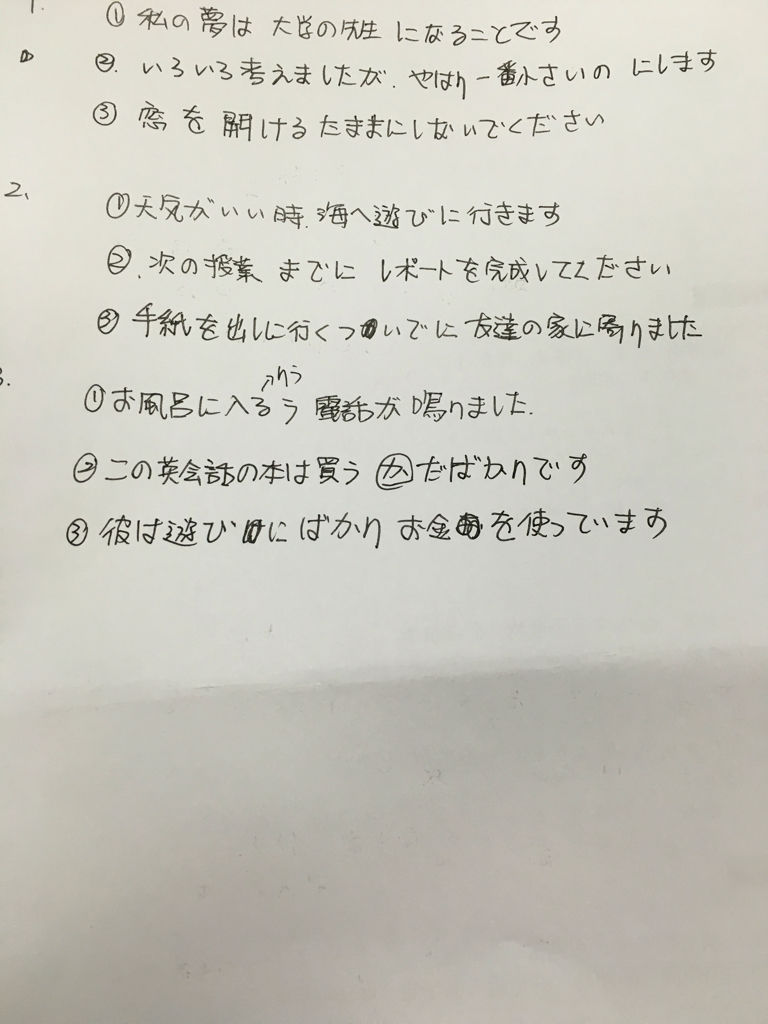 1.
① 私の夢は 大学の先生 になることです
②. いろいろ考えましたが、やはり一番小さいの にします
③ 窓を 開けるたままにしないでください
2、
① 天気がいい時、海へ遊びに行きます
②. 次の授業 までに レポートを完成してください
③ 手紙を出しに行くついでに 友達の家に寄りました
3.
① お風呂に入るう 電話が鳴りました.
② この英会話の本は買う かだばかりです
③ 彼は遊びにばかり お金を使っています